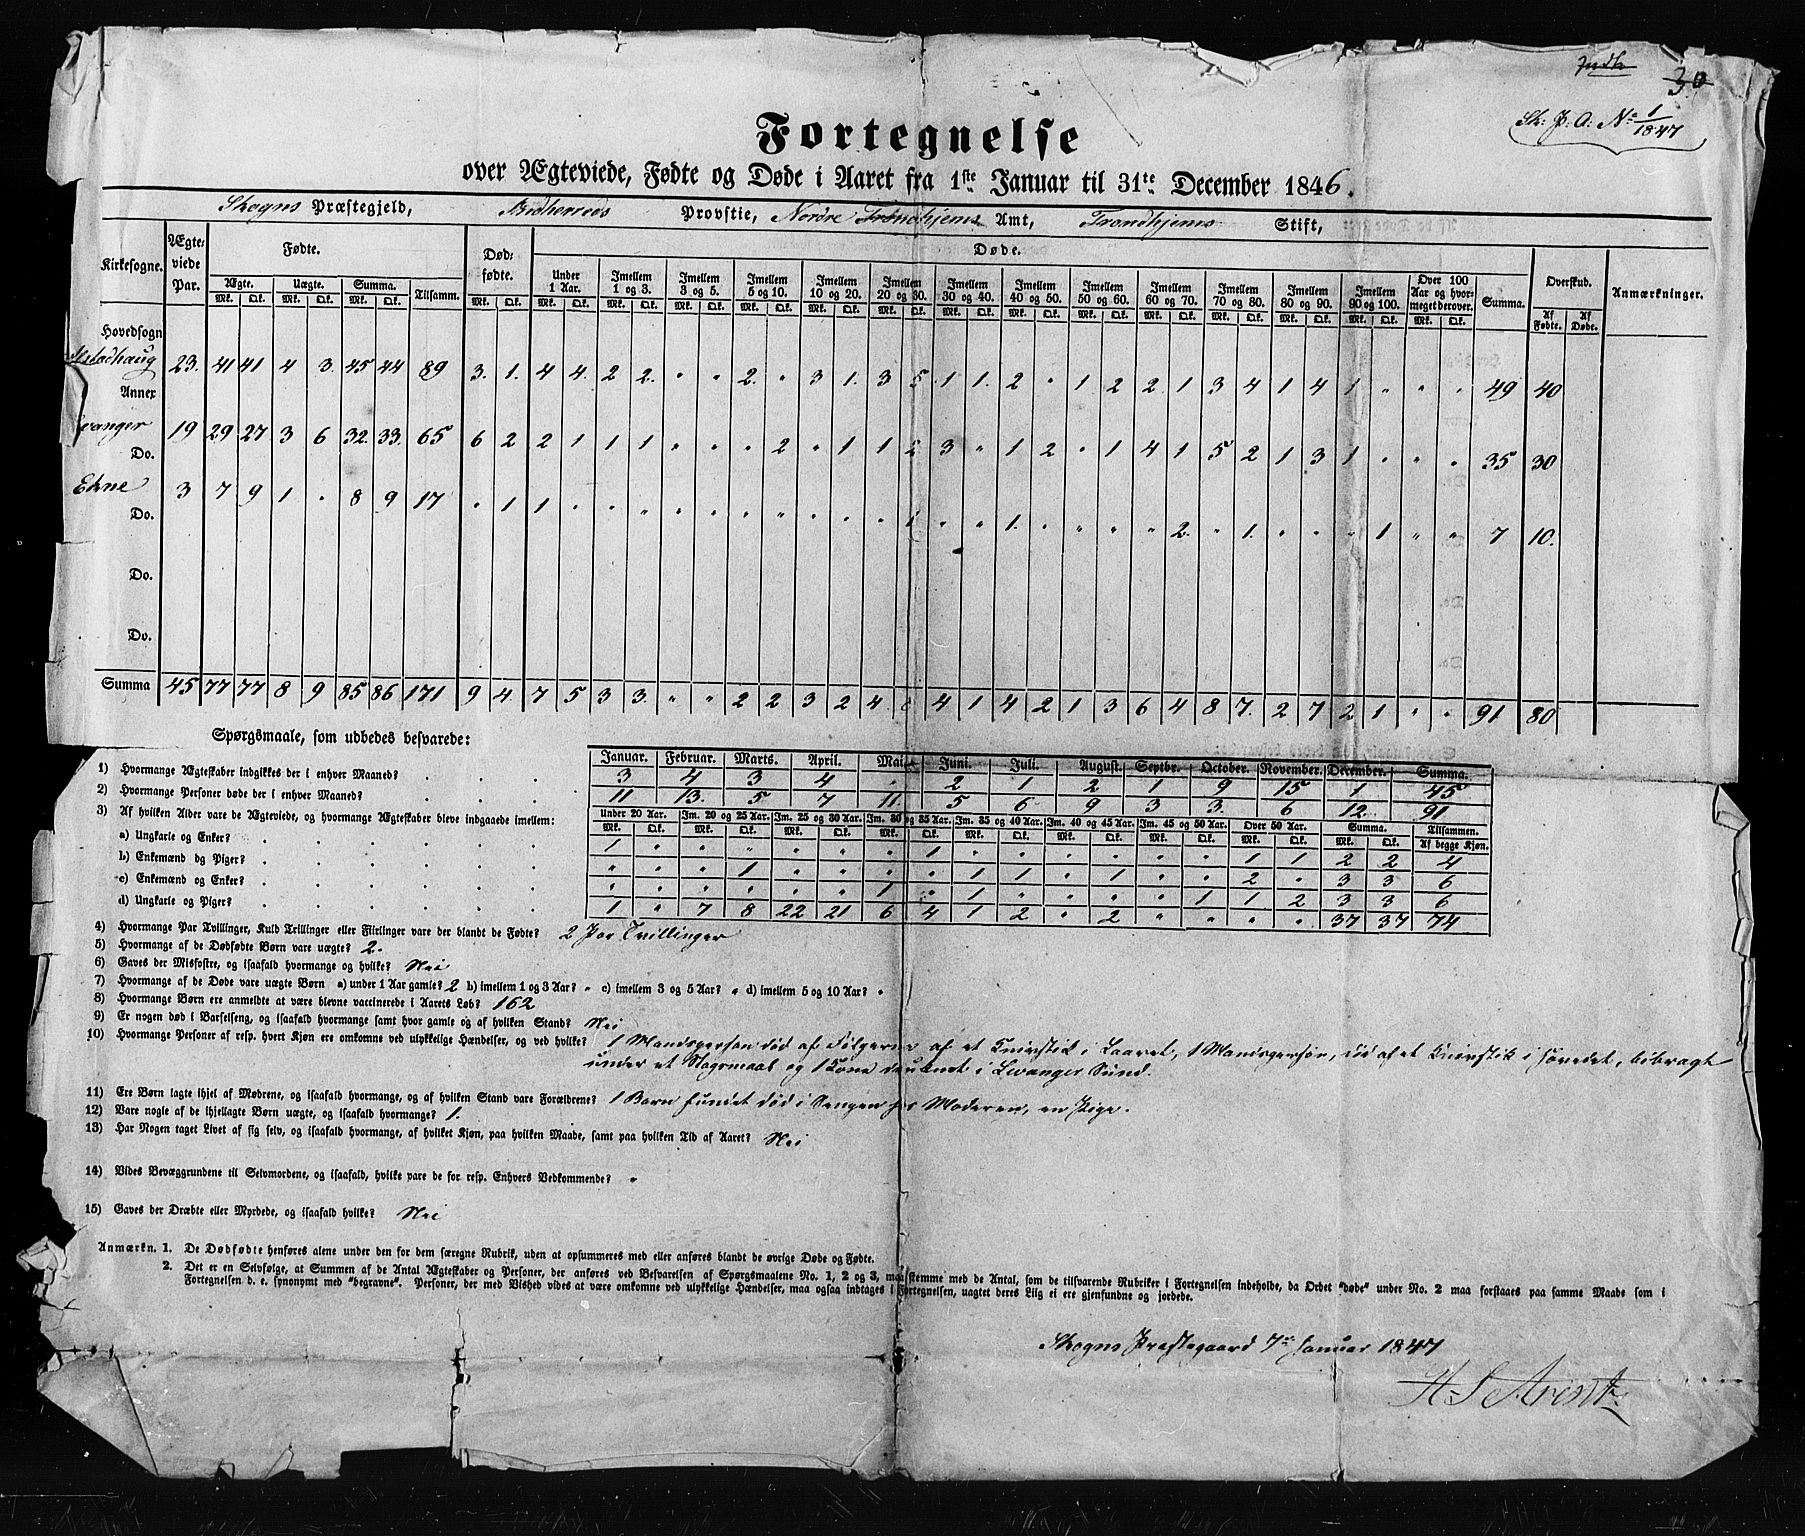 Indb 30
Sk: P. A: No 1/1847
Fortegnelse
over Ægteviede, Fødte og Døde i Aaret fra 1ste Januar til 31te December 1846.
Skogns Præstegjeld, Provstie, Nordre Trondhjems Amt, Trondhjems Stift,
Kirkesogne. Ægteviede Par. Fødte. Dødfødte. Døde. Overskud. Anmærkninger.
Ægte. Uægte. Summa. Tilsamm. Under 1 Aar. Imellem 1 og 3. Imellem 3 og 5. Imellem 5 og 10. Imellem 10 og 20. Imellem 20 og 30. Imellem 30 og 40. Imellem 40 og 50. Imellem 50 og 60. Imellem 60 og 70. Imellem 70 og 80. Imellem 80 og 90. Imellem 90 og 100. Over 100 Aar og hvormeget derover. Summa. Af Fødte. Af Døde.
Mk. Qk. Mk. Qk. Mk. Qk. Mk. Qk. Mk. Qk. Mk. Qk. Mk. Qk. Mk. Qk. Mk. Qk. Mk. Qk. Mk. Qk. Mk. Qk. Mk. Qk. Mk. Qk. Mk. Qk. Mk. Qk. Mk. Qk. Mk. Qk.
Hovedsogn
Alstadhaug 23. 41 41 4 3. 45 44 89 3. 1. 4 4. 2 2. " " 2. " 3 1. 3 5 1 1. 2 " 1 2 2. 1 3 4 1 4 1 " " " 49 40
Annex
Levanger 19 29 27 3 6 32. 33. 65 6 2 2 1 1 1 " " " 2 " 1 1 2 3 " 1 2 " 1 4 1 5 2 1 3 1 " " " 35 30
Do.
Ekne 3 7 9 1 " 8 9 17 " 1 1 " " " " " " " " " " 1 " " 1. " " " " 2. " 1. " " " 1 " " 7 10.
Do.
Do.
Do.
Summa 45 77 77 8 9 85 86 171 9 4. 7 5 3 3. " " 2 2 3 2 4. 8 4 1 4 2 1 3 6 4 8 7. 2 7 2 1 " " 91 80
Spørgsmaale, som udbedes besvarede:
Januar. Februar. Marts. April. Mai. Juni. Juli. August. Septbr. October. November. December. Summa.
1) Hvormange Ægteskaber indgikkes der i enhver Maaned? 3 4 3 4 " 2 1 2 1 9 15 1 45
2) Hvormange Personer døde der i enhver Maaned? 11 13. 5 7 11. 5 6 9 3 3. 6 12. 91
3) Af hvilken Alder vare de Ægteviede, og hvormange Ægteskaber bleve indgaaede imellem: Under 20 Aar. Im. 20 og 25 Aar. Im. 25 og 30 Aar. Im. 30 og 35 Aar. Im. 35 og 40 Aar. Im. 40 og 45 Aar. Im. 45 og 50 Aar. Over 50 Aar. Summa. Tilsammen.
Mk. Qk. Mk. Qk. Mk. Qk. Mk. Qk. Mk. Qk. Mk. Qk. Mk. Qk. Mk. Qk. Mk. Qk. Af begge Kjøn.
a) Ungkarle og Enker? 1 " " " " " " 1 " " " " " " 1 1 2 2 4
b) Enkemænd og Piger? " " " 1 " " " " 1 1 " 1 " " 2 " 3 3 6
c) Enkemænd og Enker? " " " " " " 1 " 1 " " " " 1 1 2 3 3 6
d) Ungkarle og Piger? 1 " 7 8 22 21 6 4 1 2 " 2 " " " " 37 37 74
4) Hvormange Par Tvillinger, Kuld Trillinger eller Fiirlinger vare der blandt de Fødte? 2 Par Tvillinger
5) Hvormange af de Dødfødte Børn vare uægte? 2.
6) Gaves der Misfostre, og isaafald hvormange og hvilke? Nei
7) Hvormange af de Døde vare uægte Børn a) under 1 Aar gamle? 2 b) imellem 1 og 3 Aar? " c) imellem 3 og 5 Aar? " d) imellem 5 og 10 Aar? "
8) Hvormange Børn ere anmeldte at være blevne vaccinerede i Aarets Løb? 162
9) Er nogen død i Barselseng, og isaafald hvormange samt hvor gamle og af hvilken Stand? Nei
10) Hvormange Personer af resp. hvert Kjøn ere omkomne ved ulykkelige Hændelser, og ved hvilke? 1 Mandsperson død af Følgerne af et Knivstik i Laaret, 1 Mandsperson, død af et Knivstik i Hovedet, bibragt
under et Slagsmaal og 1 Kone druknet i Levanger Sund.
11) Ere Børn lagte ihjel af Mødrene, og isaafald hvormange, og af hvilken Stand vare Forældrene? 1 Barn fundet død i Sengen hos Moderen, en Pige.
12) Vare nogle af de ihjellagte Børn uægte, og isaafald hvormange? 1.
13) Har Nogen taget Livet af sig selv, og isaafald hvormange, af hvilket Kjøn, paa hvilken Maade, samt paa hvilken Tid af Aaret? Nei
14) Vides Bevæggrundene til Selvmordene, og isaafald, hvilke vare de for resp. Enhvers Vedkommende? "
15) Gaves der Dræbte eller Myrdede, og isaafald hvilke? Nei
Anmærkn. 1. De Dødfødte henføres alene under den for dem særegne Rubrik, uden at opsummeres med eller anføres blandt de øvrige Døde og Fødte.
2. Det er en Selvfølge, at Summen af de Antal Ægteskaber og Personer, der anføres ved Besvarelsen af Spørgsmaalene No. 1, 2 og 3, maa stemme med de Antal, som de tilsvarende Rubriker i Fortegnelsen indeholde, da Ordet "døde" under No. 2 maa forstaaes paa samme Maade som i
Fortegnelsen d. e. synonymt med "begravne". Personer, der med Vished vides at være omkomne ved ulykkelige Hændelser, maa ogsaa indtages i Fortegnelsen, uagtet deres Liig ei ere gjenfundne og jordede.
Skogns Præstegaard 7de Januar 1847
H S Arentz